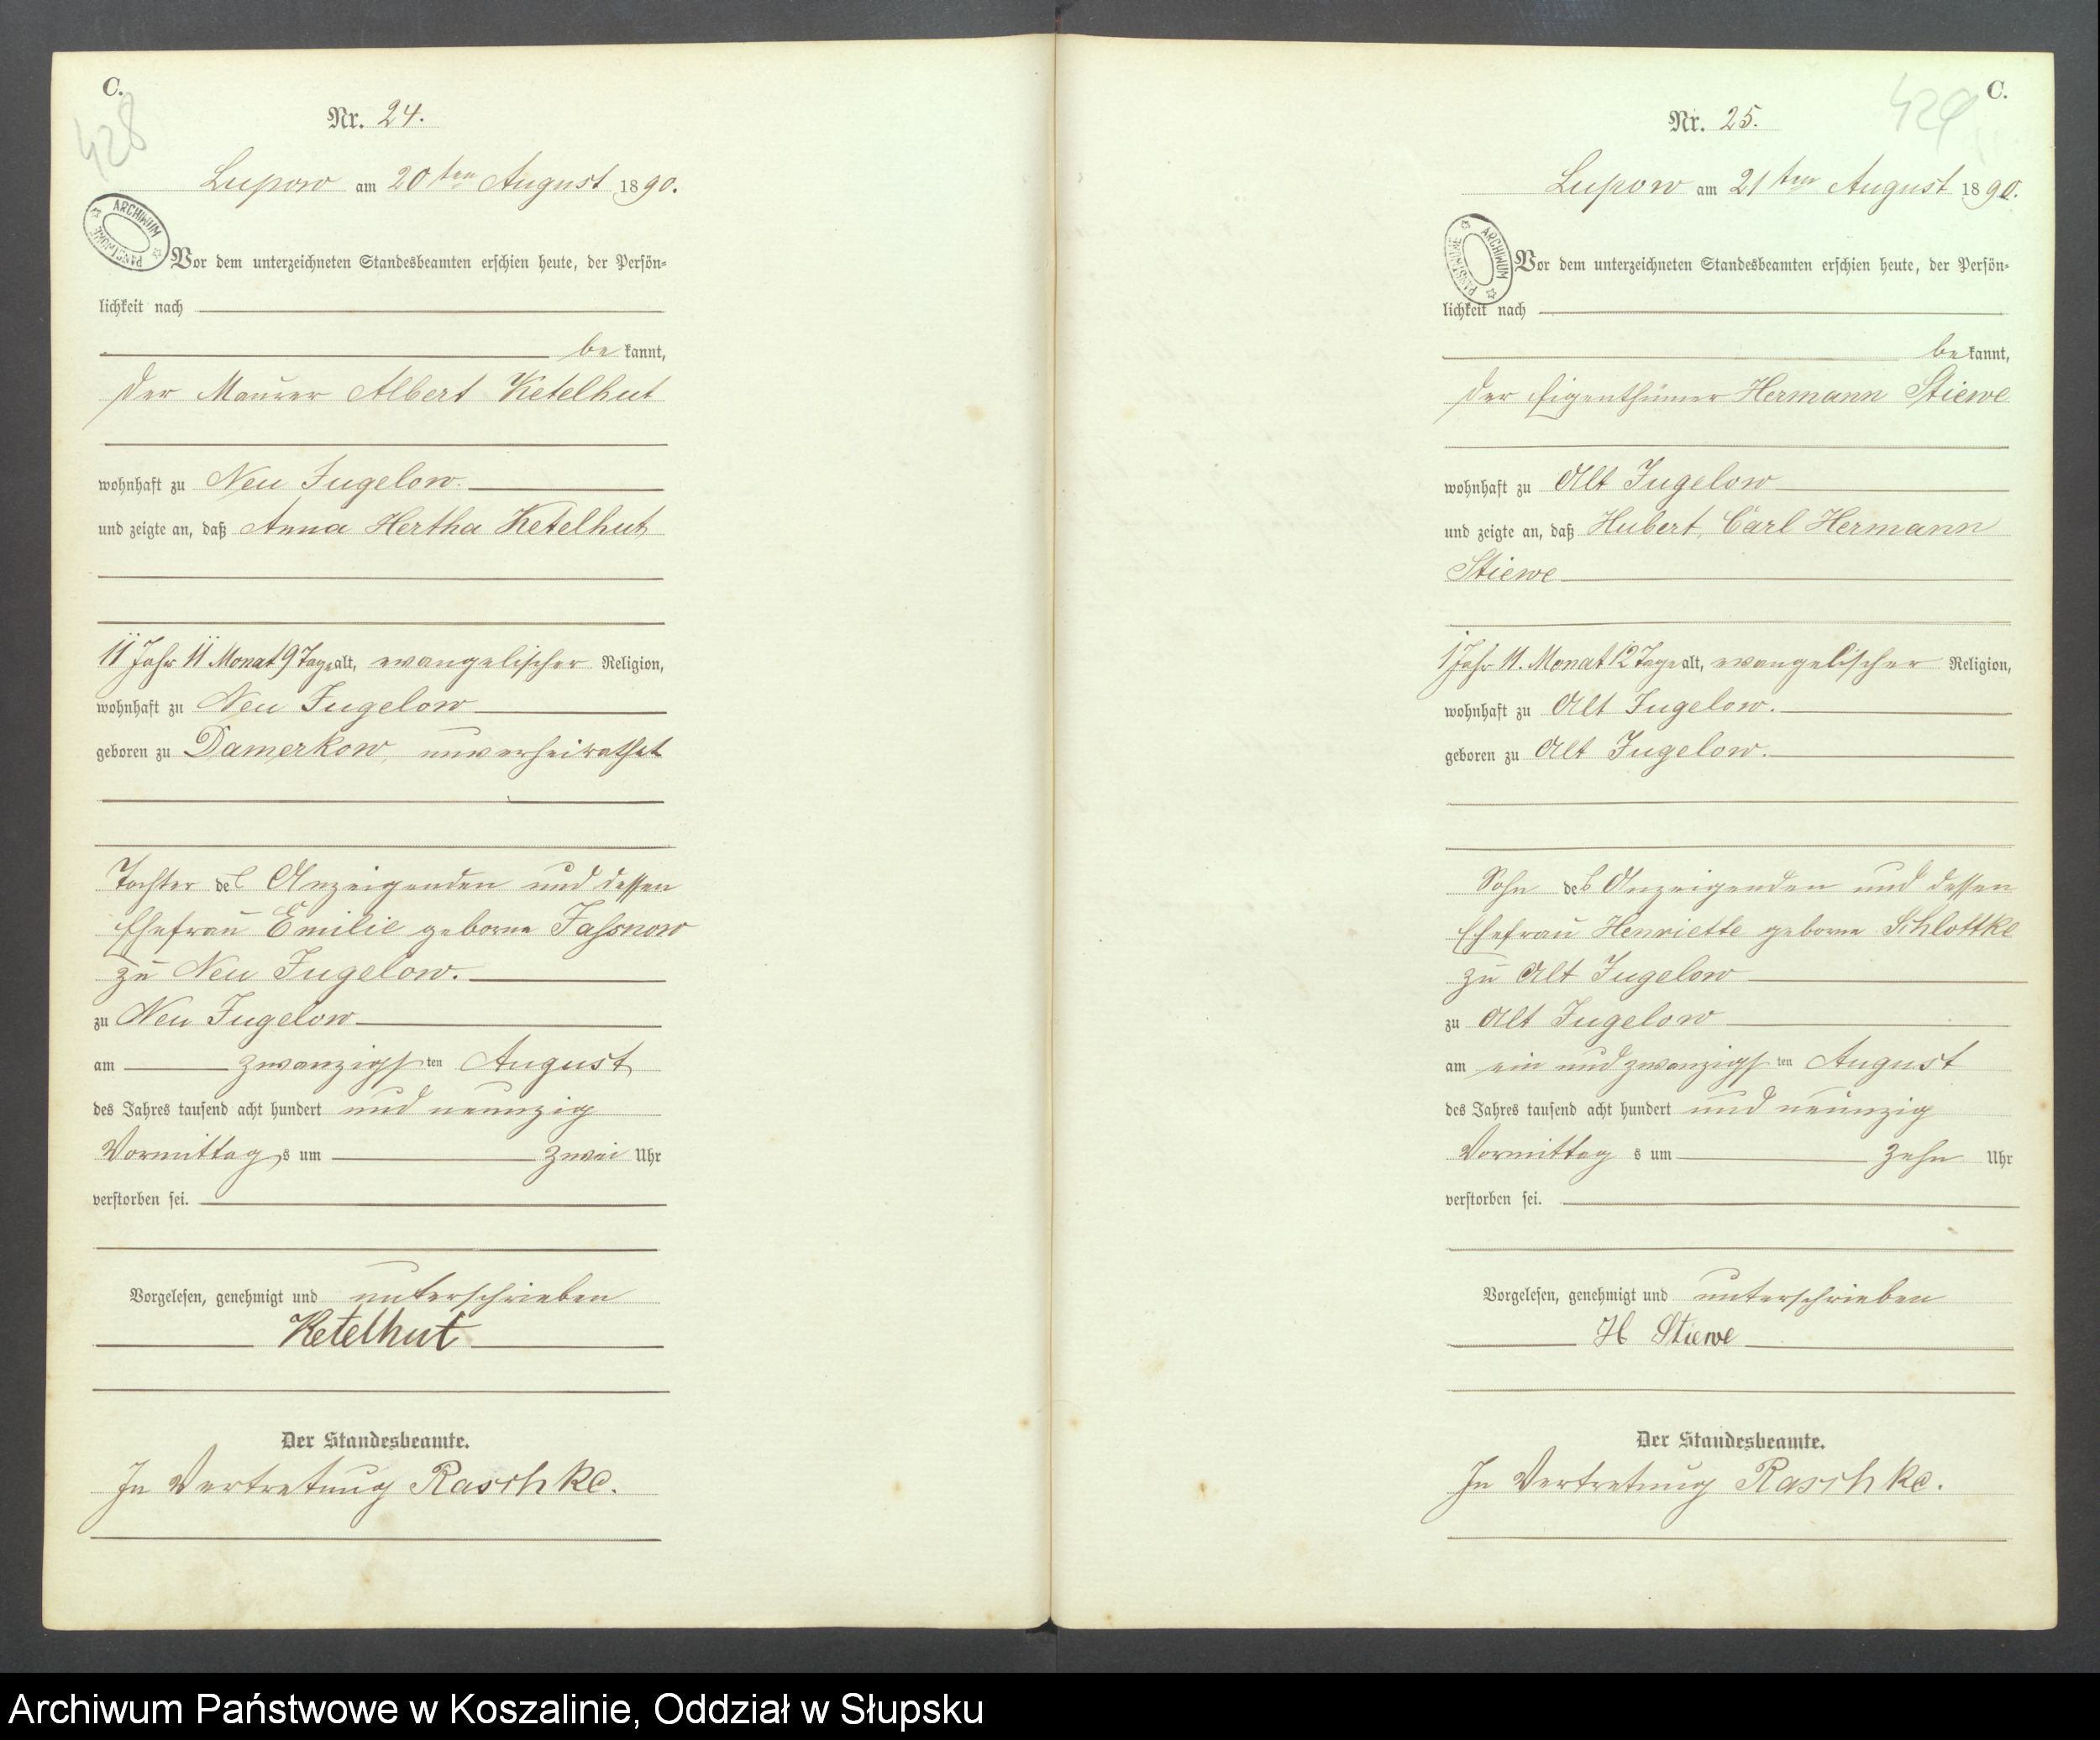 C.
428
Nr. 24.
Lupow am 20ten August 1890.
ARCHIWUM PAŃSTWOWE
Vor dem unterzeichneten Standesbeamten erschien heute, der Persön-
lichkeit nach
be kannt,
der Maurer Albert Ketelhut
wohnhaft zu Neu Jugelow.
und zeigte an, daß Anna Hertha Ketelhut
11 Jahr 11 Monat 9 Tage alt, evangelischer Religion,
wohnhaft zu Neu Jugelow
geboren zu Damerkow, unverheirathet
Tochter des Anzeigenden und dessen
Ehefrau Emilie geborne
zu Neu Jugelow.
zu Neu Jugelow
am zwanzigsten August
des Jahres tausend acht hundert und neunzig
Vormittags um zwei Uhr
verstorben sei.
Vorgelesen, genehmigt und unterschrieben
Ketelhut
Der Standesbeamte.
In Vertretung Raschke.
C.
429
Nr. 25.
Lupow am 21ten August 1890.
ARCHIWUM PAŃSTWOWE
Vor dem unterzeichneten Standesbeamten erschien heute, der Persön-
lichkeit nach
be kannt,
der Eigenthümer Hermann Stiewe
wohnhaft zu Alt Jugelow
und zeigte an, daß Hubert, Carl Hermann
Stiewe
1 Jahr 11. Monat 12 Tage alt, evangelischer Religion,
wohnhaft zu Alt Jugelow.
geboren zu Alt Jugelow.
Sohn des Anzeigenden und dessen
Ehefrau Henriette geborne Schlottke
zu Alt Jugelow
zu Alt Jugelow
am ein und zwanzigsten August
des Jahres tausend acht hundert und neunzig
Vormittags um zehn Uhr
verstorben sei.
Vorgelesen, genehmigt und unterschrieben
H Stiewe
Der Standesbeamte.
In Vertretung Raschke.
Archiwum Państwowe w Koszalinie, Oddział w Słupsku